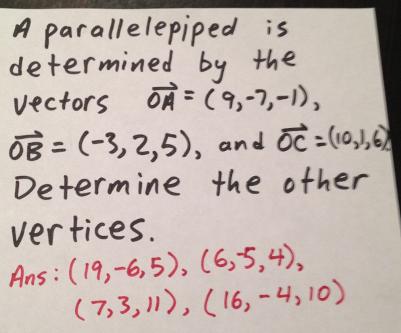 A parallelepiped is
determined by the
vectors OA→ = (9,-7,-1),
OB→ = (-3,2,5), and OC→ = (10,1,6).
Determine the other
vertices.
Ans: (19,-6,5), (6,-5,4),
(7,3,11), (16,-4,10)